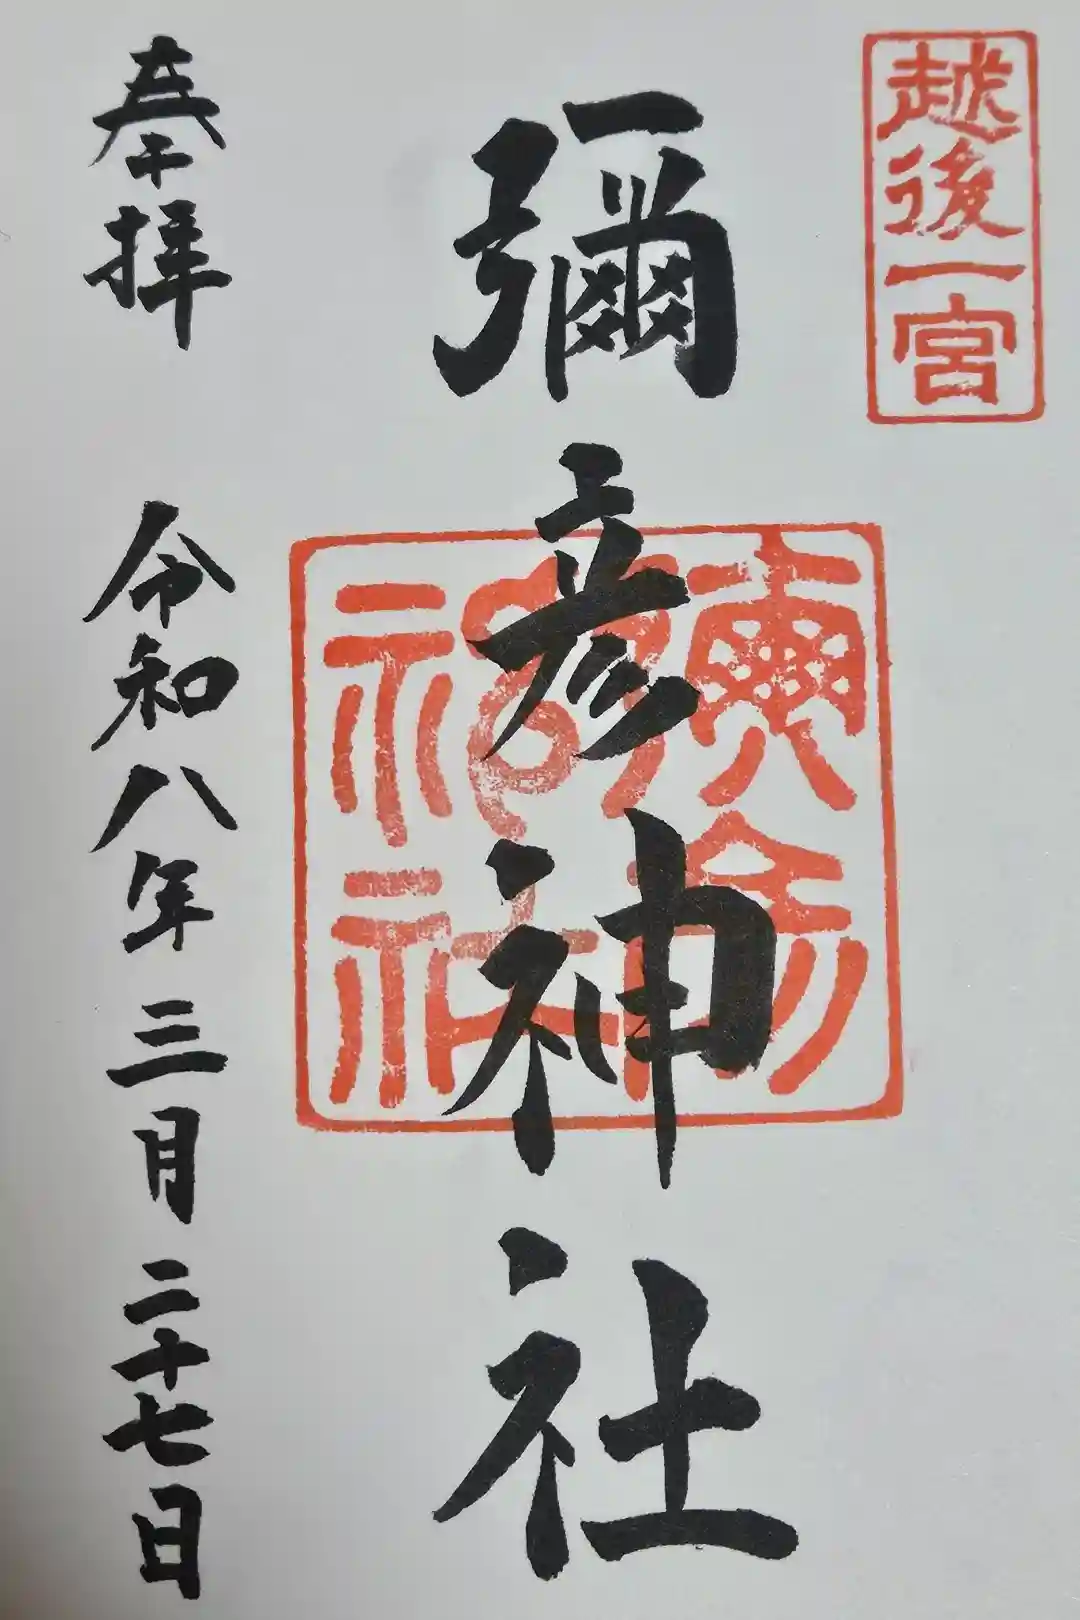 越後一宮
彌彦神社
奉拝
令和八年三月二十七日